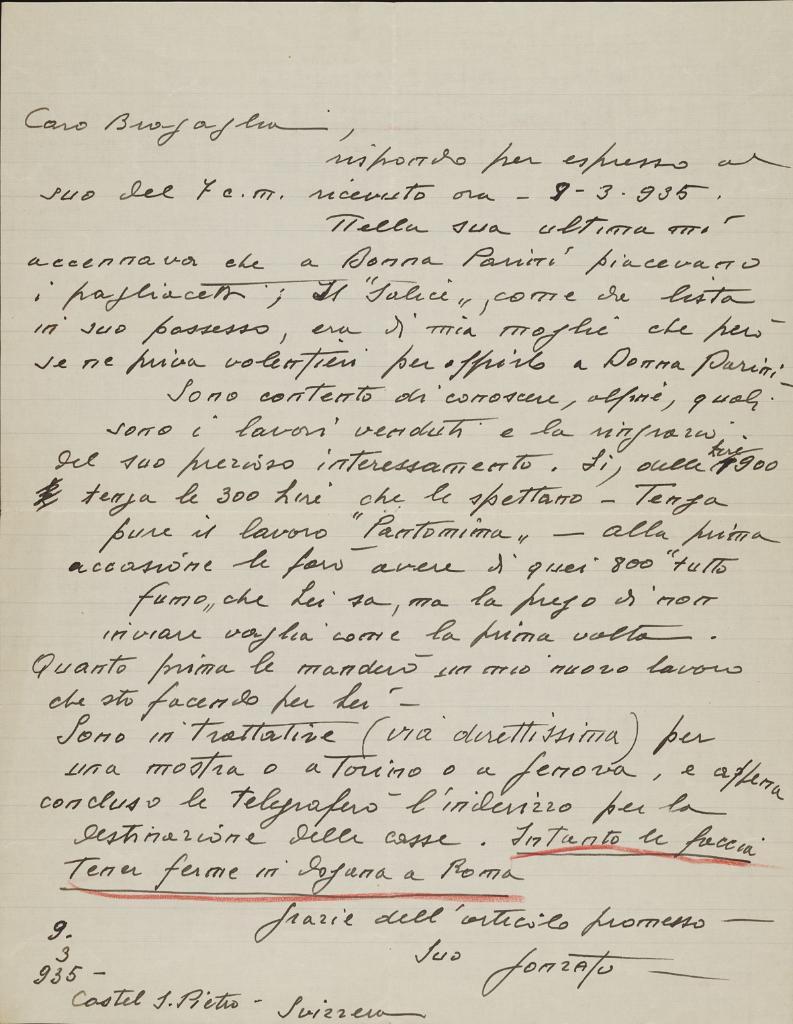 Caro Bragaglia,
rispondo per espresso al
suo del 7 c.m. ricevuto ora - 9-3-935.
Nella sua ultima mi
accennava che a Donna Parini piacevano
i pagliacetti; Il "Salici", come da lista
in suo possesso, era di mia moglie che però
se ne priva volentieri per offrirlo a Donna Parini -
Sono contento di conoscere, alfine, quali
sono i lavori venduti e la ringrazio
del suo prezioso interessamento. Sì, delle lire 900
tenga le 300 Lire che le spettano - Tenga
pure il lavoro "Pantomima" - alla prima
occasione le farò avere di quei 800 "tutto
fumo", che Lei sa, ma la prego di non
inviare vaglia come la prima volta.
Quanto prima le manderò un mio nuovo lavoro
che sto facendo per Lei -
Sono in trattative (via direttissima) per
una mostra o a Torino o a Genova, e appena
concluso le telegraferò l'inderizzo per la
destinazione delle casse. Intanto le faccia
tener ferme in dogana a Roma
Grazie dell'articolo promesso -
Suo Gonzato
9.
3
935 -
Castel S. Pietro - Svizzera